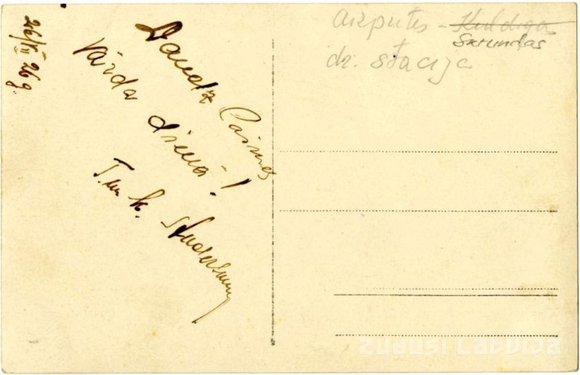 26/XI 26 g.
Daudz laimes
vārda dienā!
T. un k.
aizputes - Kuldīgas
Skrundas
dz. stacija
Zudusī Latvija